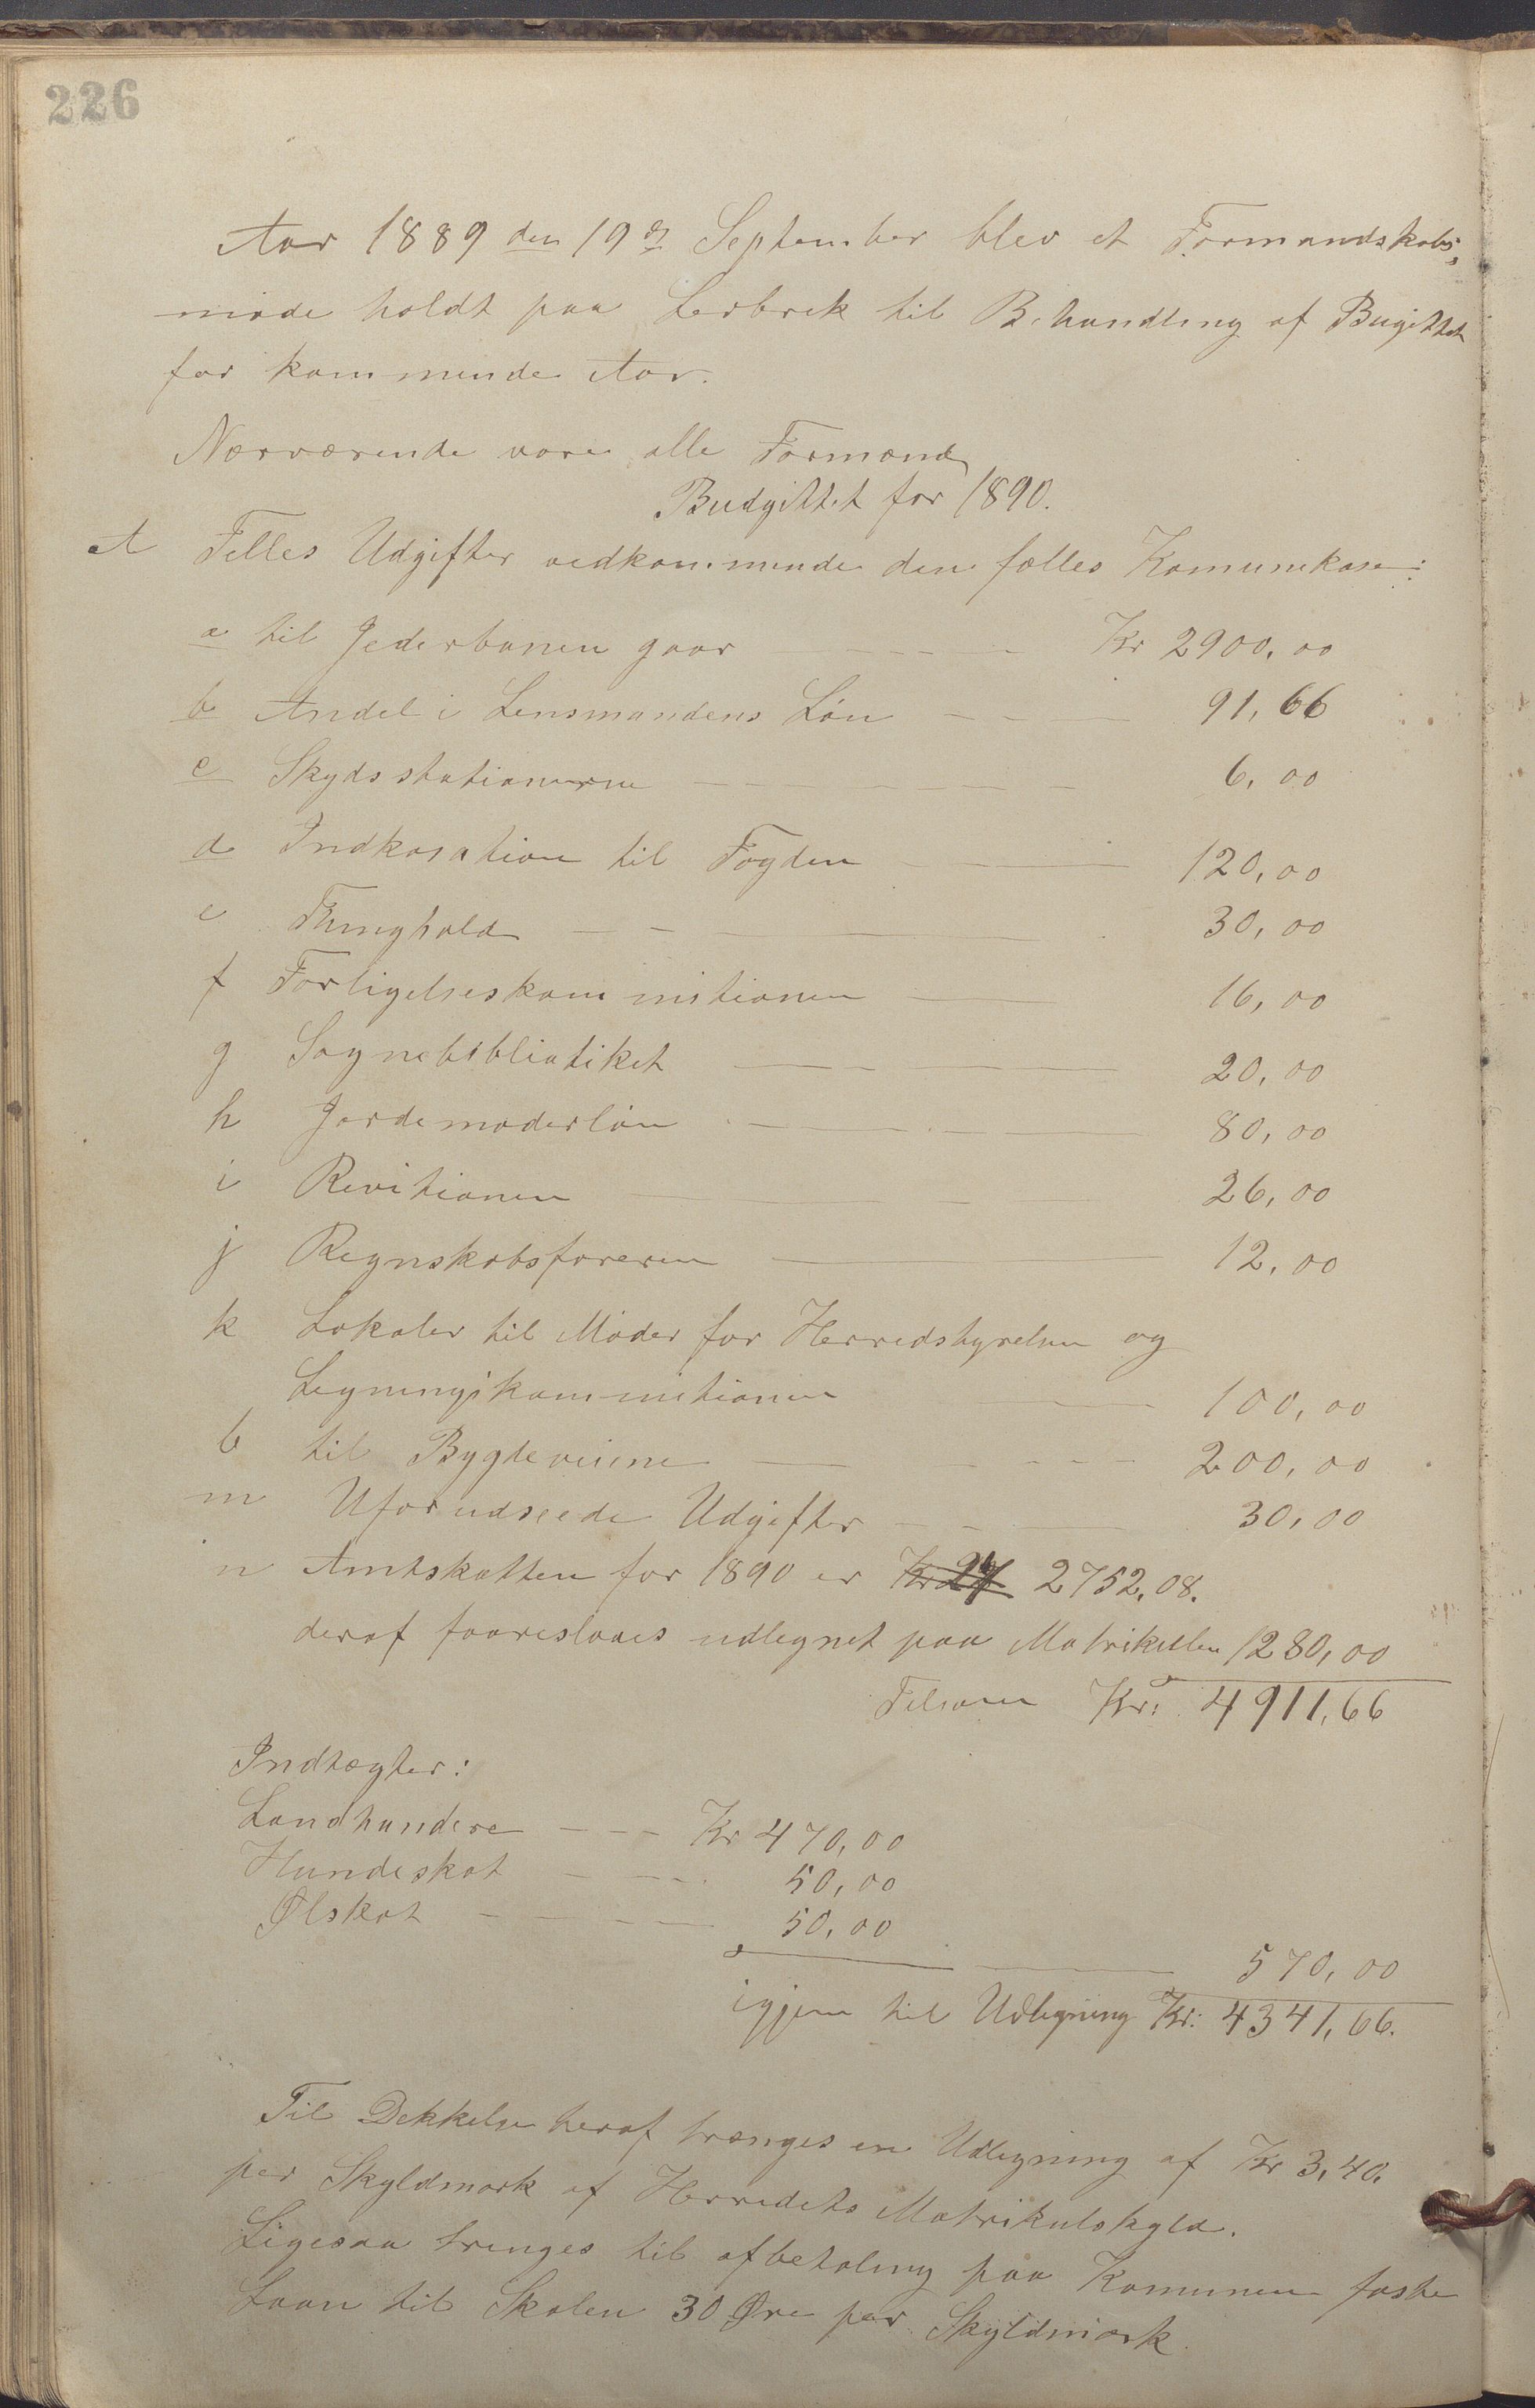 226
Aar 1889 den 19de September blev et Formandskabs,
møde holdt paa Lerbrek til Behandling af Bugittet
for kommende Aar.
Nærværende vare alle Formænd
Budgittet for 1890.
A Felles Udgifter vedkommende den fælles Komunekase:
a til Jederbanen gaar — — — Kr 2900,00
b Andel i Lensmandens Løn — — — 91,66
c Skydsstationerne — — — 6,00
d Indkasation til Fogden — — 120,00
e Thinghold — — — 30,00
f Forligelseskommitionen — — 16,00
g Sognebibliotiket — — — 20,00
h Jordemoderløn — — — 80,00
i Revitionen — — — 26,00
j Regnskabsføreren — — 12,00
k Lokaler til Møder for Herredstyrelsen og
Ligningskommitionen — — 100,00
l til Bygdeveiene — — — 200,00
m Uforudseede Udgifter — — — 30,00
n Amtskatten for 1890 er Kr 27 2752,08.
deraf foareslaaes udlegnet paa Matrikullen 1280,00
Tilsam Kr: 4911,66
Indtægter:
Landhandere — — — Kr 470,00
Hundeskat — — — 50,00
Ølskat — — — 50,00
570,00
igjen til Udlegning Kr: 4341,66.
Til Dekkelse heraf trænges en Udlegning af Kr 3,40.
per Skyldmark af Herredets Matrikulskyld.
Ligesaa trenges til afbetaling paa Komunens faste
Laan til Skolen 30 Øre per Skyldmark.